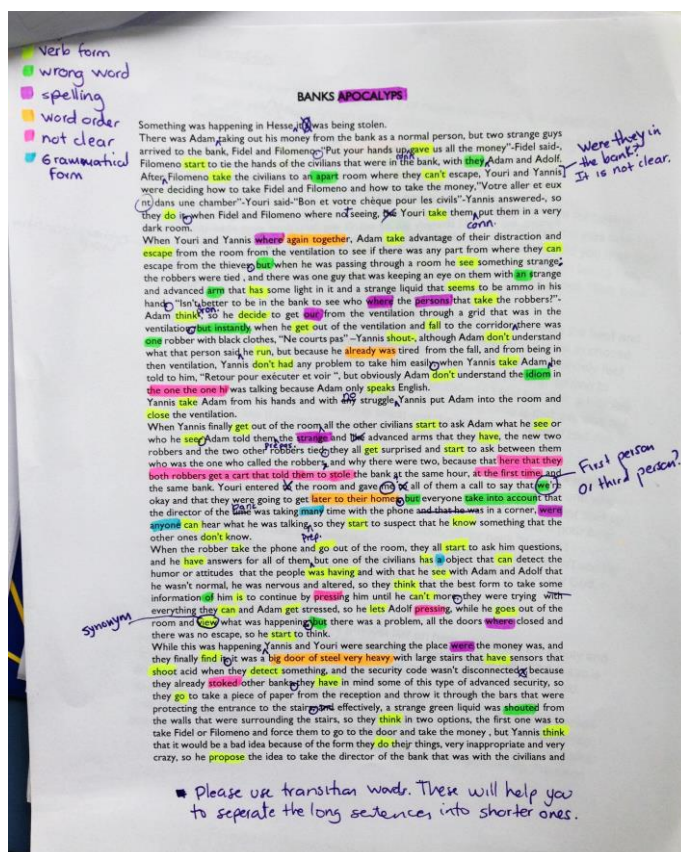 verb form
wrong word
spelling
word order
not clear
Grammatical form
BANKS APOCALYPS
Something was happening in Hesse, it was being stolen.
There was Adam, taking out his money from the bank as a normal person, but two strange guys
arrived to the bank, Fidel and Filomeno. "Put your hands up, gave us all money"-Fidel said-,
Filomeno start to tie the hands of the civilians that were in the bank, with they Adam and Adolf.
After Filomeno take the civilians to an apart room where they can't escape, Youri and Yannis
were deciding how to take Fidel and Filomeno and how to take the money,"Votre aller et eux
nt dans une chamber"-Youri said-"Bon et votre chèque pour les civils"-Yannis answered-, so
they do it, when Fidel and Filomeno where not seeing, Youri take them, put them in a very
conn.
dark room.
Were they in
the bank?
It is not clear.
When Youri and Yannis where again together, Adam take advantage of their distraction and
escape from the room from the ventilation to see if there was any part from where they can
escape from the thieves, but when he was passing through a room he see something strange;
the robbers were tied , and there was one guy that was keeping an eye on them with an strange
and advanced arm that has some light in it and a strange liquid that seems to be ammo in his
hand. "Isn't better to be in the bank to see who where the persons that take the robbers?"-
pron.
Adam think, so he decide to get our from the ventilation through a grid that was in the
ventilation, but instantly when he get out of the ventilation and fall to the corridor, there was
one robber with black clothes, "Ne courts pas" –Yannis shout-, although Adam don't understand
what that person said, he run, but because he already was tired from the fall, and from being in
then ventilation, Yannis don't had any problem to take him easily, when Yannis take Adam, he
told to him, "Retour pour exécuter et voir ", but obviously Adam don't understand the idiom in
the one the one hi was talking because Adam only speaks English.
Yannis take Adam from his hands and with any no struggle, Yannis put Adam into the room and
close the ventilation.
When Yannis finally get out of the room, all the other civilians start to ask Adam what he see or
who he see, Adam told them the strange and the advanced arms that they have, the new two
prepos.
robbers and the two other robbers tied, they all get surprised and start to ask between them
who was the one who called the robbers, and why there were two, because that here that they
both robbers get a cart that told them to stole the bank at the same hour, at the first time, and
the same bank. Youri entered the room and gave me all of them a call to say that we're
First person
or third person?
okay and that they were going to get later to their homes, but everyone take into account that
the director of the time bank was taking many time with the phone and that he was in a corner, were
anyone can hear what he was talking, so they start to suspect that he know something that the
prep.
other ones don't know.
When the robber take the phone and go out of the room, they all start to ask him questions,
and he have answers for all of them, but one of the civilians has a object that can detect the
humor or attitudes that the people was having and with that he see with Adam and Adolf that
he wasn't normal, he was nervous and altered, so they think that the best form to take some
information of him is to continue by pressing him until he can't more, they were trying with
everything they can and Adam get stressed, so he lets Adolf pressing, while he goes out of the
synonym
room and view what was happening, but there was a problem, all the doors where closed and
there was no escape, so he start to think.
While this was happening, Yannis and Youri were searching the place were the money was, and
they finally find it, it was a big door of steel very heavy with large stairs that have sensors that
shoot acid when they detect something, and the security code wasn't disconnected, because
they already stoked other banks, they have in mind some of this type of advanced security, so
they go to take a piece of paper from the reception and throw it through the bars that were
protecting the entrance to the stairs, and effectively, a strange green liquid was shouted from
the walls that were surrounding the stairs, so they think in two options, the first one was to
take Fidel or Filomeno and force them to go to the door and take the money , but Yannis think
that it would be a bad idea because of the form they do their things, very inappropriate and very
crazy, so he propose the idea to take the director of the bank that was with the civilians and
Please use transition words. These will help you
to seperate the long sentences into shorter ones.